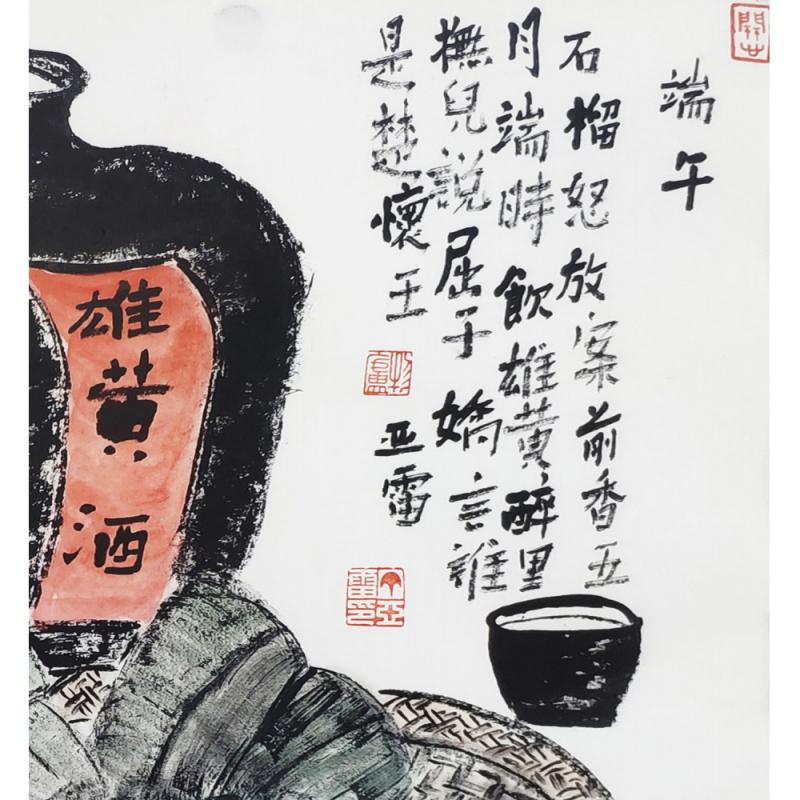 端午
石榴怒放案前香五
月端時飲雄黄醉里
撫兒說屈子嬌言誰
是楚懷王
亚雷
雄黄酒